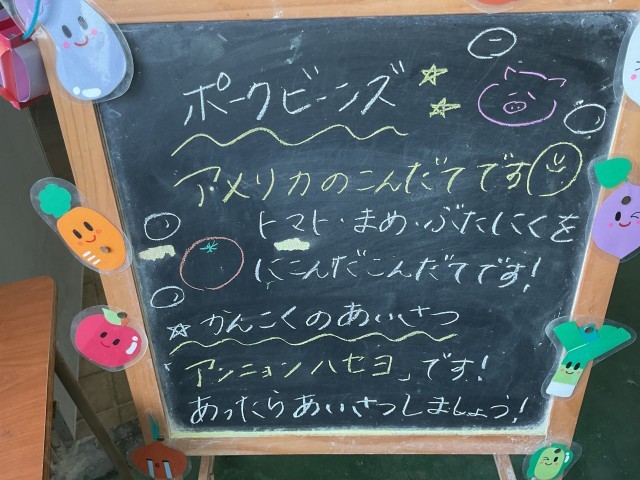 ポークビーンズ
アメリカのこんだてです
トマト・まめ・ぶたにくを
にこんだこんだてです!
☆かんこくのあいさつ
「アンニョンハセヨ」です!
あったらあいさつしましょう!